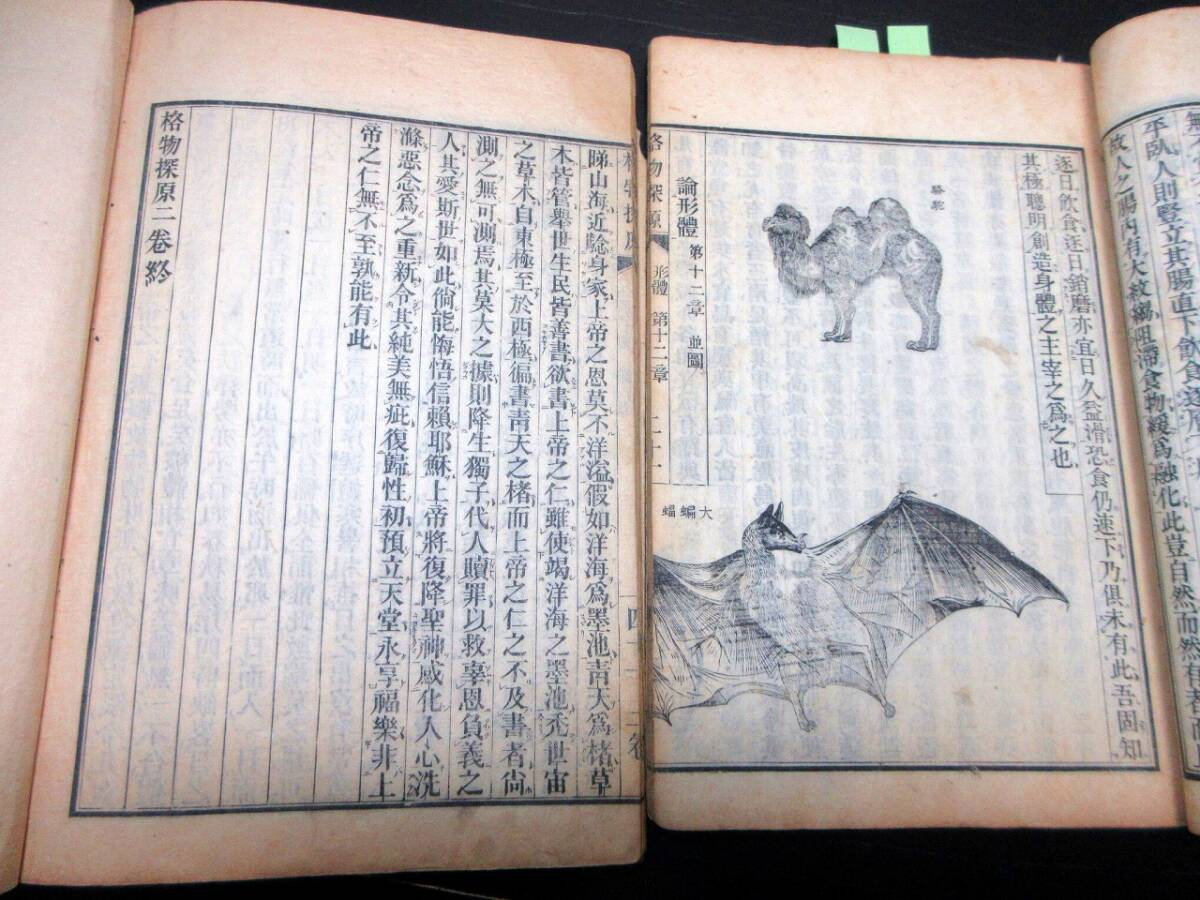 平臥人則豎立其腸直下飲食
故人之腸內有大枚襉阻滯食物緩爲融化此豈自然而然
逐日飲食逐日銷磨亦宜日久益滑恐食仍速下乃俱未有此吾固知
其極聰明創造身體之主宰之爲之也
駱駝
論形體 第十二章 並圖
大蝙蝠
格物探原 形體 第十二章 二十一
睇山海近驗身家上帝之恩莫不洋溢假如洋海爲墨池靑天爲楮草
木皆管舉世生民皆善書欲書上帝之仁雖使竭洋海之墨池禿世宙
之草木自東極至於西極徧書靑天之楮而上帝之仁之不及書者尙
測之無可測焉其莫大之據則降生獨子代人贖罪以救辜恩負義之
人其愛斯世如此倘能悔悟信賴耶穌上帝將復降聖神感化人心洗
滌惡念爲之重新令其純美無疵復歸性初預立天堂永享福樂非上
帝之仁無不至孰能有此
格物探原二卷終